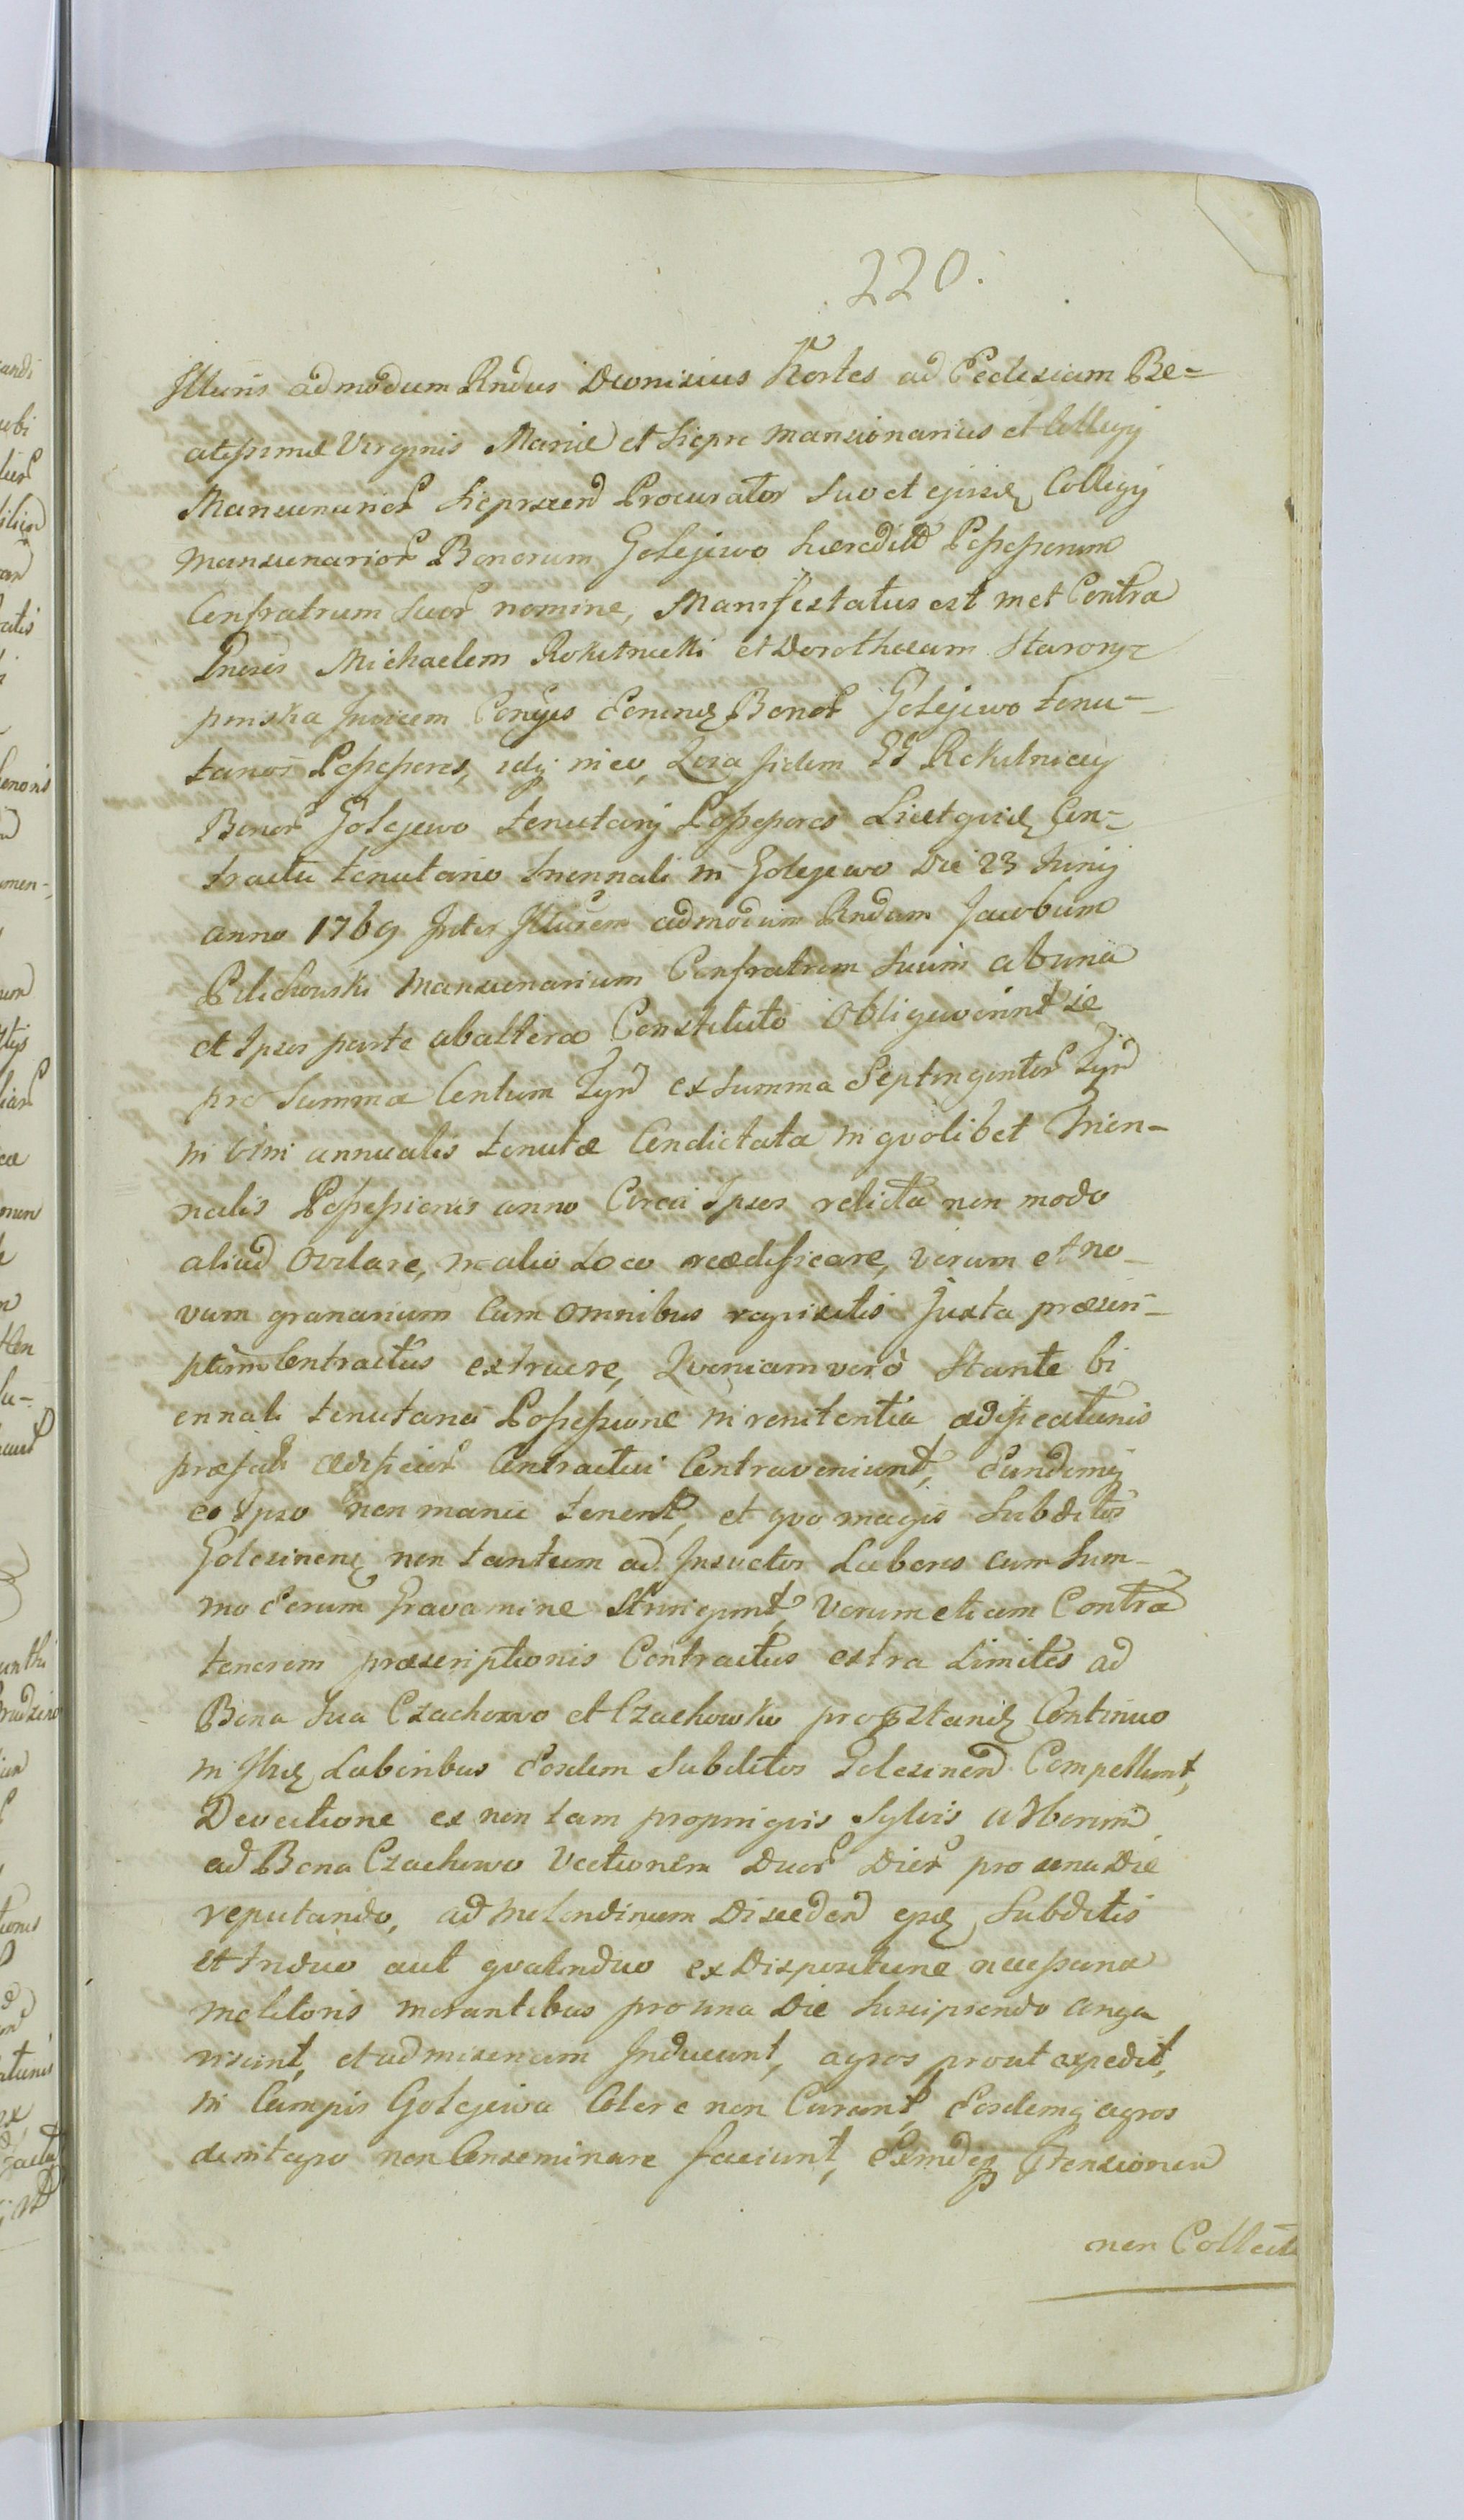 220.
Illuris admodum Rndus Dionisius Kortes ad Ecclesiam Be-
atissimæ Virginis Mariæ et Siepre mansionarius et Collegij
Mansionarior Siepracen Procurator suo et ejusdē Collegij
mansionarior Bonorum Golejewo hæredita Possessorum
Confratrum suor nomine, Manifestatus est met Contra
Gnosis Michaelem Rokitnicki et Dorotheam Starorÿ-
pinska Invicem Conjges Eorundē Bonor Golejewo tenu-
tarior Possessores, idq in eo, Quia iidem GG Rokitniccy
Bonor Golejewo tenutarij Possessores Licet quidē Con-
tractu tenutario triennali in Golejewo Die 23 Junij
anno 1769 Inter Illurem admodum Rndum Jacobum
Pelichowski Mansionarium Confratrem suum ab una
et Ipsos parte ab altera Constituto Obligaverint se
pro Summa Centum Tynf ex summa Septingentor Tynf
in vim annualis tenutæ Condictata in quolibet Trien-
nalis Possessionis anno Circa Ipsos relicta non modo
aliud Ovilare, in alio Loco reædificare, verum et no-
vum granarium Cum omnibus requisitis Juxta præscri-
ptum Contractus extruere, Quoniam verò Stante bi
ennali tenutaria Possessione in renitentia ædificationis
præfat ædificior Contractui Contraveniunt, Eundemq
eo Ipso non manu tenent, et quo magis Subditos
Golesinens non tantum ad Insuetos Labores cum Sum-
mo Eorum Gravamine Stringunt, Verum etiam Contra
tenorem præscriptionis Contractus extra Limites ad
Bona Sua Czachowo et Czachowko pro præstandis Continuo
in Illis Laboribus Eosdem Subditos Golesinen Compellunt,
Devectione ex non tam propinquis Sylvis arborum
ad Bona Czachowo Vectionem Duor Dier pro una Die
reputando, ad Molendinum Discedend ipsis Subditis
et triduo aut quatriduo ex Dispositione necessaria
molitoris morantibus pro una Die Suscipiendo anga
risant, et ad miseriam Inducunt, agros prout expedit,
in Campis Golejewa Colere non Curant, Eosdemq agros
debito agro non Conseminare faciunt, Extensionem
non Collect